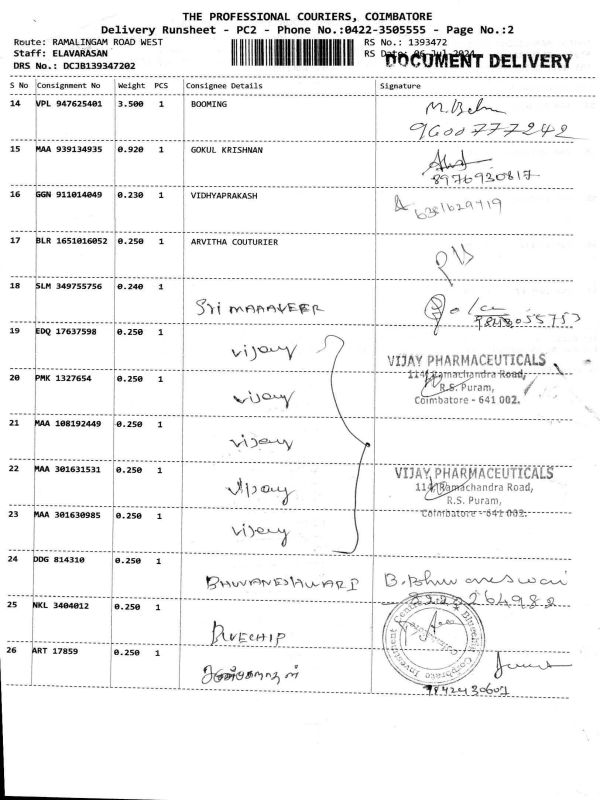 THE PROFESSIONAL COURIERS, COIMBATORE
Delivery Runsheet - PC2 - Phone No.:0422-3505555 - Page No.:2
Route: RAMALINGAM ROAD WEST RS No.: 1393472
Staff: ELAVARASAN RS Date: 06 Jul 2024 DOCUMENT DELIVERY
DRS No.: DCJB139347202
S No Consignment No Weight PCS Consignee Details Signature
14 VPL 947625401 3.500 1 BOOMING
9600777242
15 MAA 939134935 0.920 1 GOKUL KRISHNAN
8976930817
16 GGN 911014049 0.230 1 VIDHYAPRAKASH
6381629419
17 BLR 1651016052 0.250 1 ARVITHA COUTURIER
18 SLM 349755756 0.240 1
Sri MAHAVEER
19 EDQ 17637598 0.250 1 vijay
VIJAY PHARMACEUTICALS
114, Ramachandra Road,
R.S. Puram,
Coimbatore - 641 002.
20 PMK 1327654 0.250 1 vijay
21 MAA 108192449 0.250 1 vijay
22 MAA 301631531 0.250 1 vijay
VIJAY PHARMACEUTICALS
114, Ramachandra Road,
R.S. Puram,
Coimbatore - 641 002.
23 MAA 301630985 0.250 1 vijay
24 DDG 814310 0.250 1 BHUVANESHWARI B.Bhuvaneswari
25 NKL 3404012 0.250 1 BLUECHIP
Bluechip Corporate Investment Centre
26 ART 17859 0.250 1
9842430607